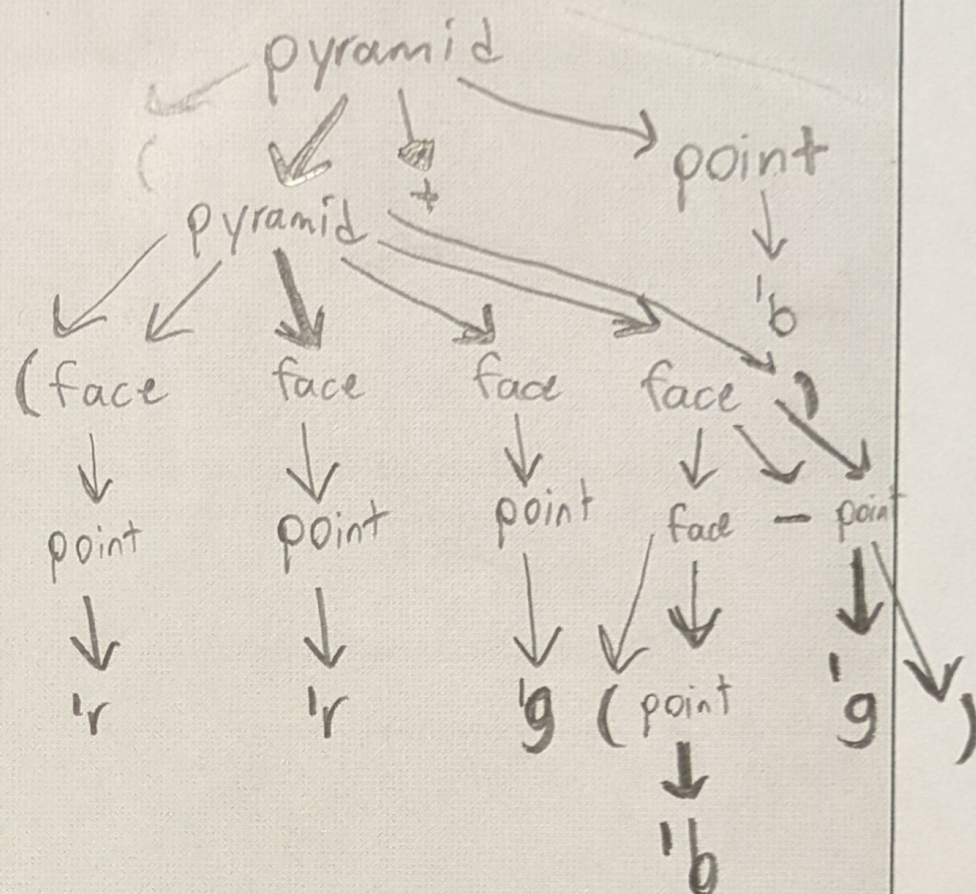 pyramid
(
+
point
pyramid
'b
(face face face face )
point point point face - point
'r 'r 'g (point 'g )
'b